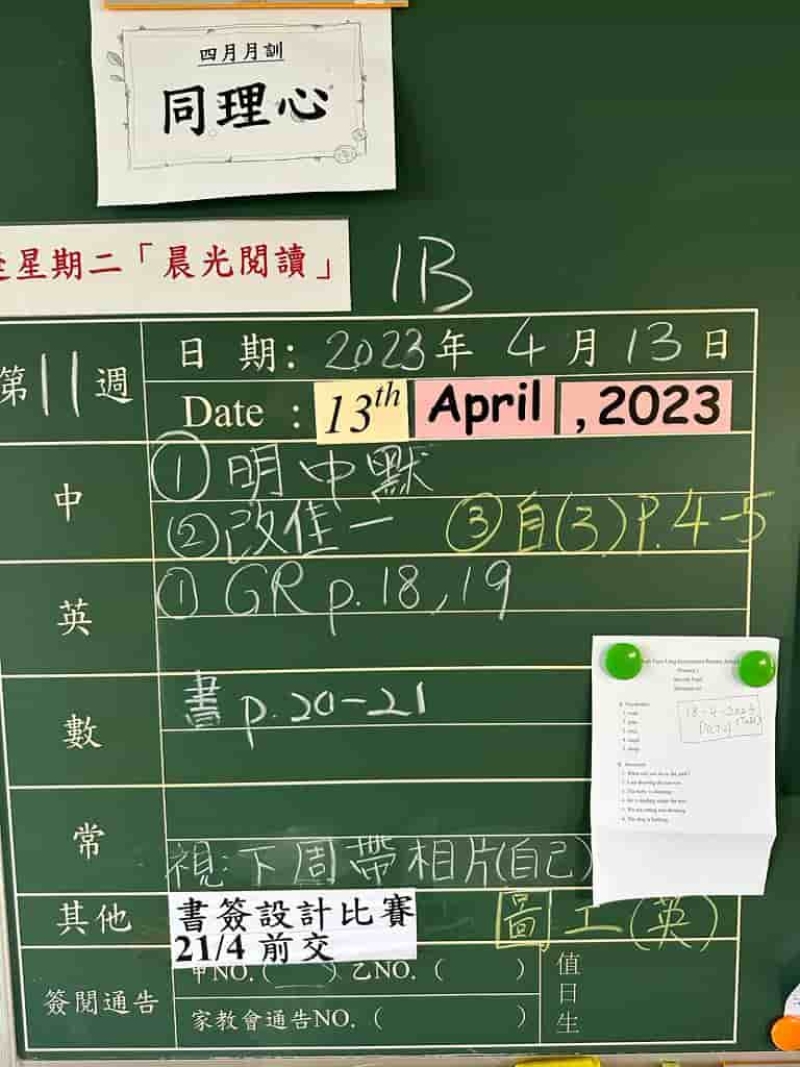 四月月訓
同理心
逢星期二「晨光閱讀」
1B
第11週
日 期: 2023年 4 月 13 日
Date : 13th April , 2023
中
① 明中默
② 改佳一 ③ 自(3) P.4-5
英
① GR p.18,19
數
書 p.20-21
常
視:下周帶相片(自己)
其他
書簽設計比賽
21/4 前交
圖工(英)
簽閱通告
甲NO.( ) 乙NO. ( )
家教會通告NO. ( )
值日生
18-4-2023